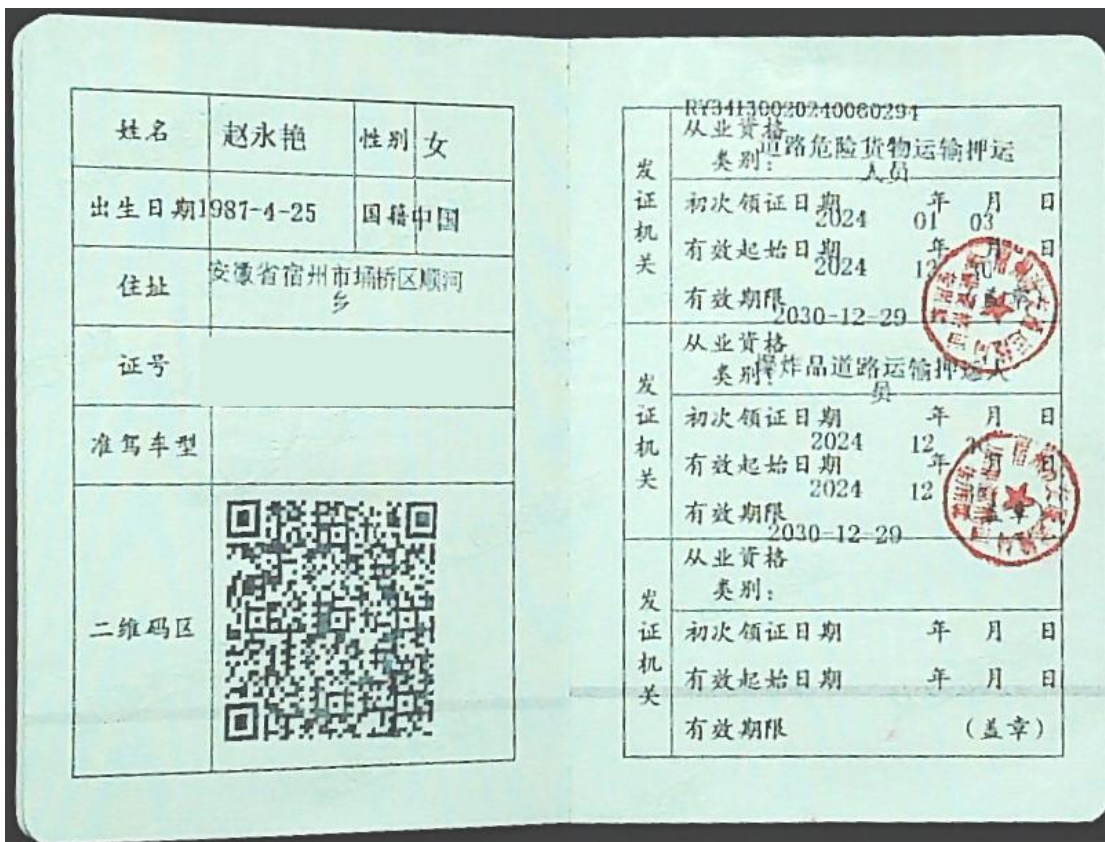 姓名 赵永艳 性别 女
出生日期 1987-4-25 国籍 中国
住址 安徽省宿州市埇桥区顺河
乡
证号
准驾车型
二维码区
RY34130020240060294
发证机关
从业资格
类别：
道路危险货物运输押运
人员
初次领证日期 年 月 日
2024 01 03
有效起始日期 年 月 日
2024 12
有效期限
2030-12-29
发证机关
从业资格
类别：
爆炸品道路运输押运人
员
初次领证日期 年 月 日
2024 12
有效起始日期 年 月 日
2024 12
有效期限 盖章
2030-12-29
发证机关
从业资格
类别：
初次领证日期 年 月 日
有效起始日期 年 月 日
有效期限 (盖章)